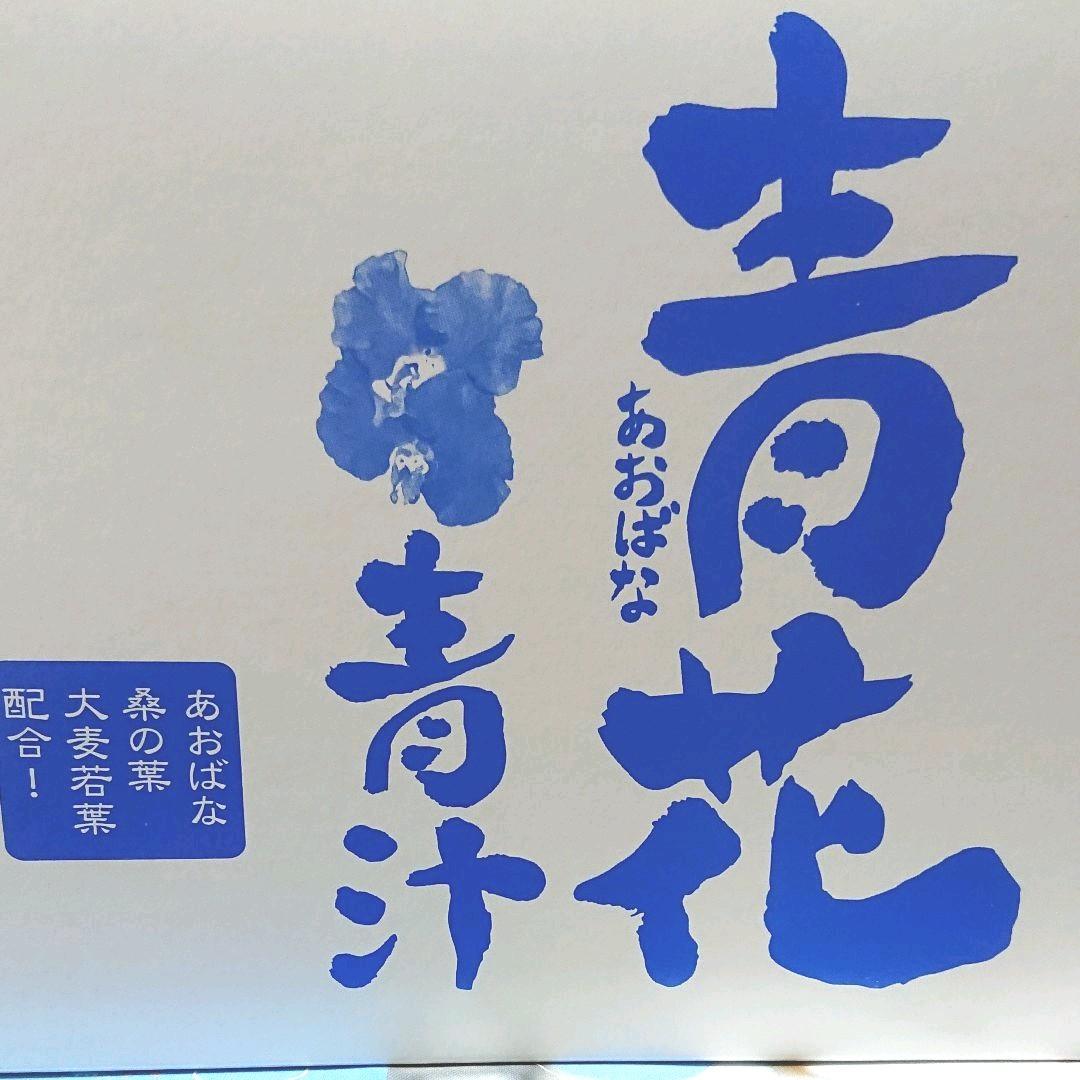 青花
あおばな
青汁
あおばな
桑の葉
大麦若葉
配合！